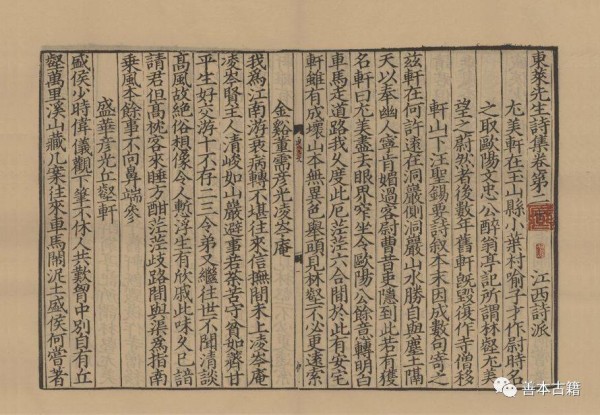 東萊先生詩集卷第
江西詩派
尤美軒在玉山縣小葉村喻子才作尉時名
之取歐陽文忠公醉翁亭記所謂林壑尤美
望之蔚然者後數年舊軒既毀復作寺僧移
軒山下汪聖錫要詩叙本末因成數句寄之
茲軒在何許遠在洞巖側洞巖山水勝自與塵土隔
天以奉幽人寧肯媚過客尉曹昔吏隱到此若有獲
名軒曰尤美盡去眼界窄坐令歐陽公餘意轉明白
車馬走道路我久度此厄茫茫六合間於此有安宅
軒雖有成壞山本無異色舉頭見林壑不必更遠索
金谿董需彥光凌岑庵
我為江南游衰病轉不堪往來信撫間未上凌岑庵
凌岑賢主人清峻如山巖避事若築苦守貧如薺甘
平生好交游十不存二三令弟又繼往世不聞清談
高風故絕俗想像令人慙浮生有欣戚此味久已諳
請君但高枕客來睡方酣茫茫歧路間與渠為指南
乘風本餘事不向鼻端參
盛華彥光丘壑軒
盛侯少時偉儀觀下筆不休人共歎胷中別自有丘
壑萬里溪山藏几案往來車馬鬧泥土盛侯何嘗著
善本古籍